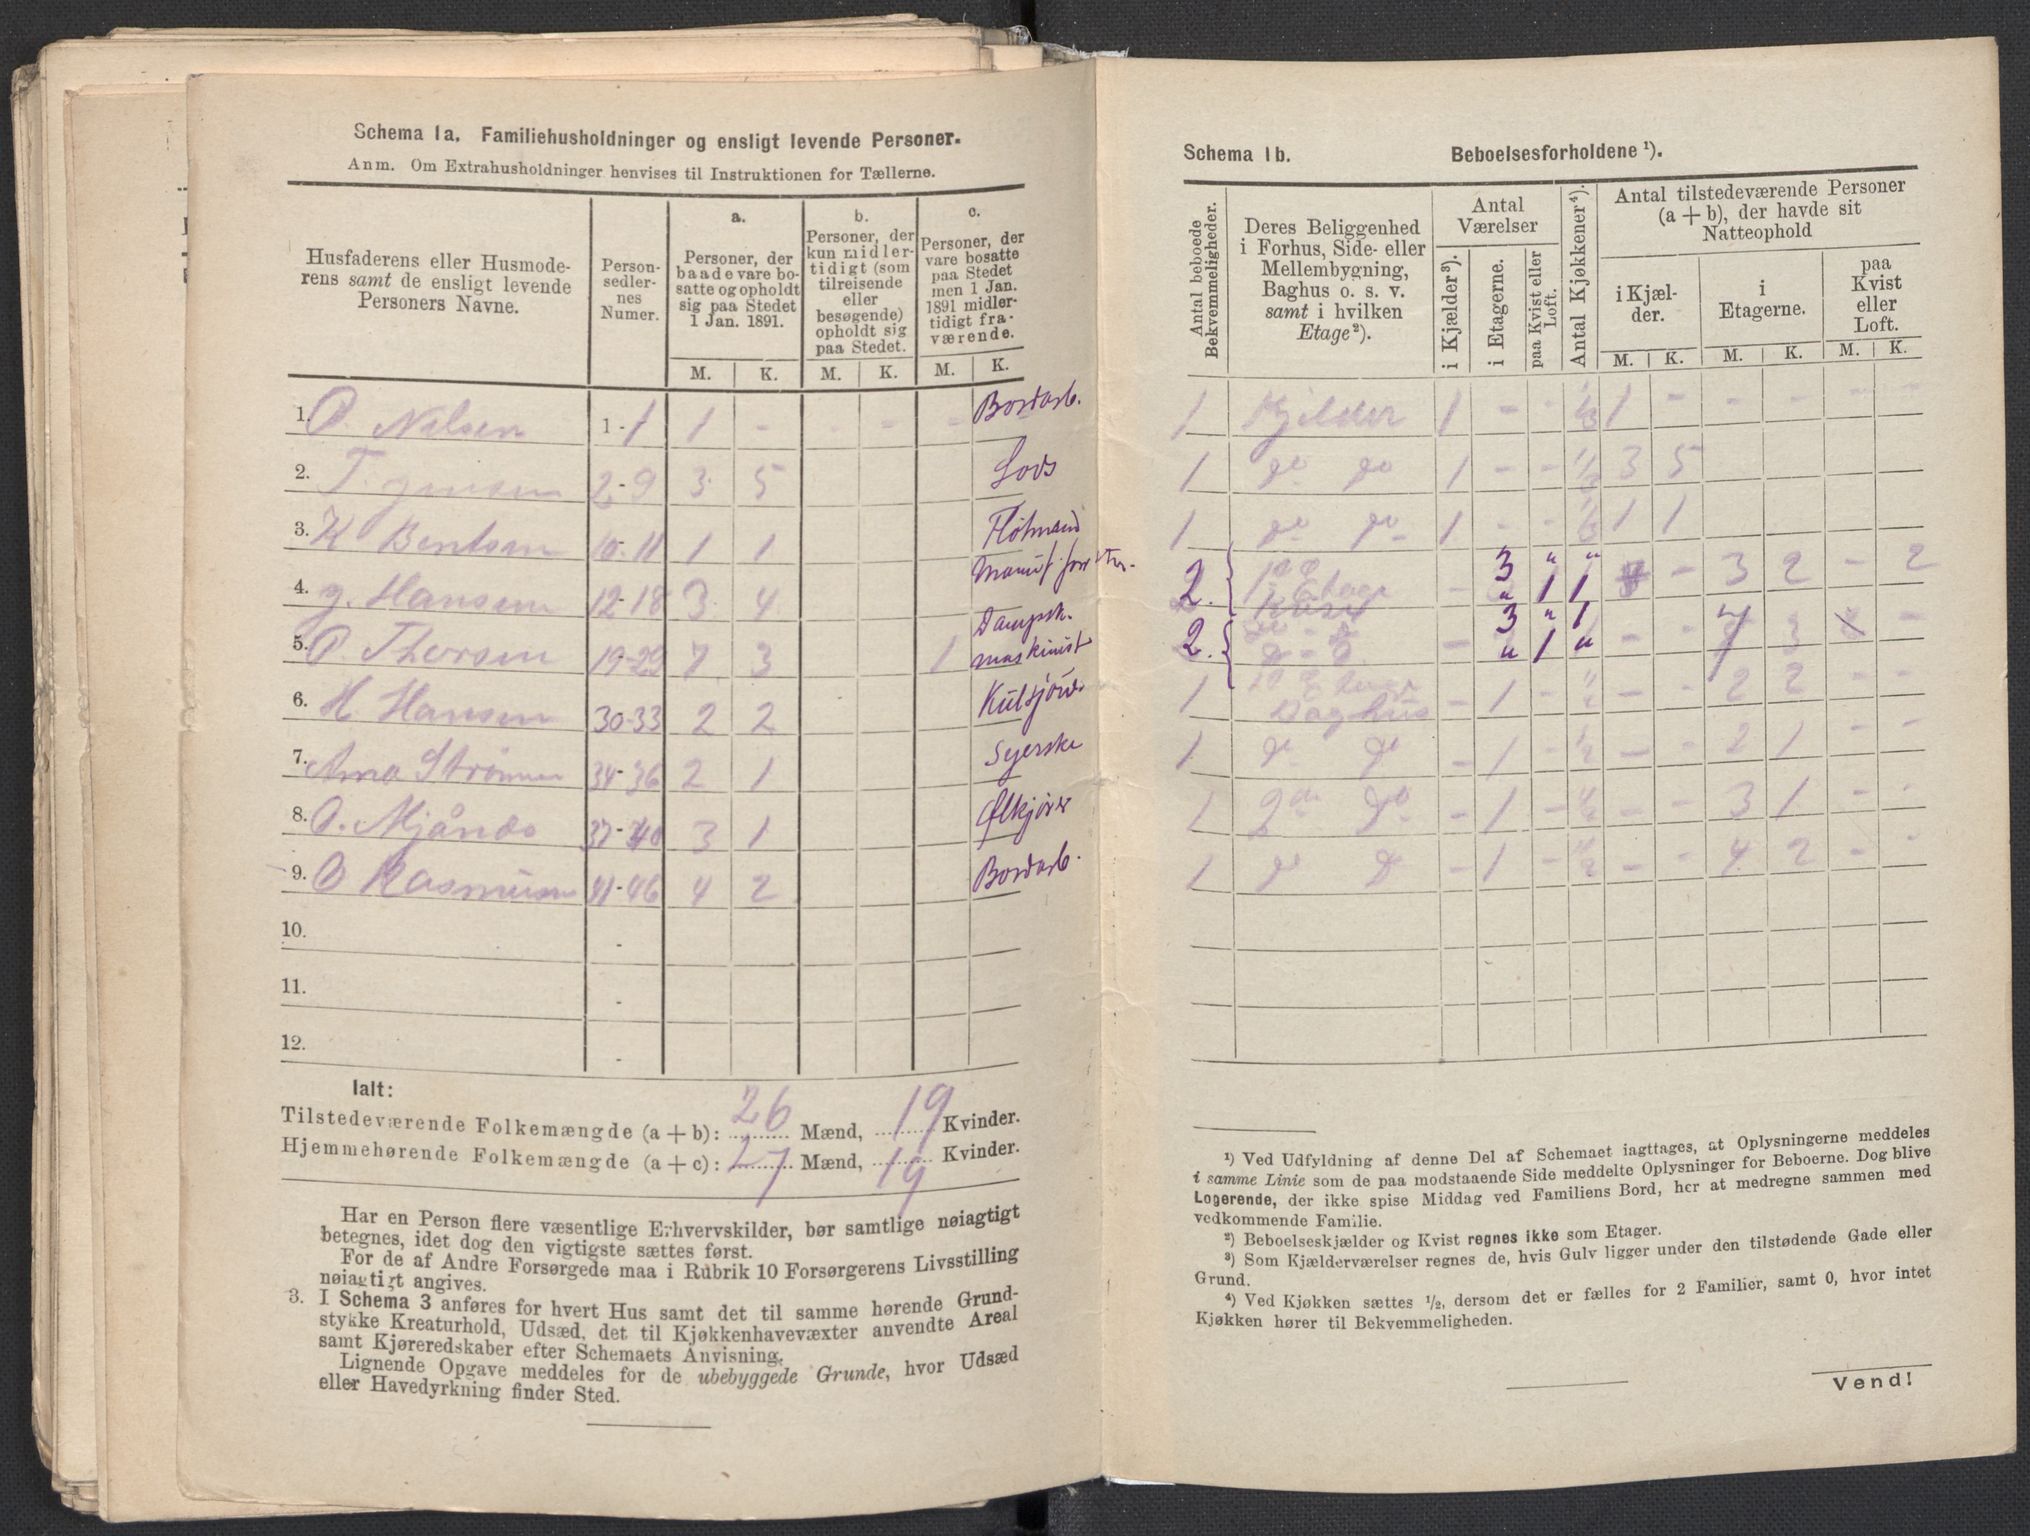 Schema 1a. Familiehusholdninger og ensligt levende Personer.
Anm. Om Extrahusholdninger henvises til Instruktionen for Tællerne.
Husfaderens eller Husmode-
rens samt de ensligt levende
Personers Navne.
Person-
sedler-
nes
Numer.
a.
Personer, der
baade vare bo-
satte og opholdt
sig paa Stedet
1 Jan. 1891.
b.
Personer, der
kun midler-
tidigt (som
tilreisende
eller
besøgende)
opholdt sig
paa Stedet.
c.
Personer, der
vare bosatte
paa Stedet
men 1 Jan.
1891 midler-
tidigt fra-
værende.
M. K. M. K. M. K.
1. O. Nilsen 1-1 1 - - - - Bordarb.
2. T. Jensen 2-9 3 5 Lods
3. K Bentsen 10-11 1 1 Fløtmand
4. J. Hansen 12-18 3 4
5. O. Thorsen 19-29 7 3 1 Dampsk.
maskinist
6. H. Hansen 30-33 2 2
7. Ana Strømme 34-36 2 1 Syerske
8. O. Mjånes 37-40 3 1 Ølkjører
9. O Rasmusen 41-46 4 2 Bordarb.
10. -
11. -
12. -
Ialt:
Tilstedeværende Folkemængde (a + b): 26 Mænd, 19 Kvinder.
Hjemmehørende Folkemængde (a + c): 27 Mænd, 19 Kvinder.
Har en Person flere væsentlige Erhvervskilder, bør samtlige nøiagtigt
betegnes, idet dog den vigtigste sættes først.
For de af Andre Forsørgede maa i Rubrik 10 Forsørgerens Livsstilling
nøiagtigt angives.
3. I Schema 3 anføres for hvert Hus samt det til samme hørende Grund-
stykke Kreaturhold, Udsæd, det til Kjøkkenhavevæxter anvendte Areal
samt Kjøreredskaber efter Schemaets Anvisning.
Lignende Opgave meddeles for de ubebyggede Grunde, hvor Udsæd
eller Havedyrkning finder Sted.
Schema 1b. Beboelsesforholdene ¹).
Antal beboede
Bekvemmeligheder.
Deres Beliggenhed
i Forhus, Side- eller
Mellembygning,
Baghus o. s. v.
samt i hvilken
Etage²).
Antal
Værelser
i Kjælder³).
i Etagerne.
paa Kvist eller
Loft.
Antal Kjøkkener⁴).
Antal tilstedeværende Personer
(a + b), der havde sit
Natteophold
i Kjæl-
der.
i
Etagerne.
paa
Kvist
eller
Loft.
M. K. M. K. M. K.
1 Kjelder 1 - - 1/3 1 - - - - -
1 do do 1 - - 1/2 3 5
1 do do 1 - - 1 1
2. - 3 " "
Etage " 1 1 - 3 2 - 2
2. 3 " 1
- " 1 " - - 7 3 -
1 Etage
Baghus - 1 - 1/2 - - 2 2 - -
1 do do - 1 - 1/2 - - 2 1 - -
1 2de do - 1 - 1/2 - - 3 1 - -
1 do do - 1 - 1/2 - - 4 2 - -
¹) Ved Udfyldning af denne Del af Schemaet iagttages, at Oplysningerne meddeles
i samme Linie som de paa modstaaende Side meddelte Oplysninger for Beboerne. Dog blive
Logerende, der ikke spise Middag ved Familiens Bord, her at medregne sammen med
vedkommende Familie.
²) Beboelseskjælder og Kvist regnes ikke som Etager.
³) Som Kjælderværelser regnes de, hvis Gulv ligger under den tilstødende Gade eller
Grund.
⁴) Ved Kjøkken sættes ½, dersom det er fælles for 2 Familier, samt 0, hvor intet
Kjøkken hører til Bekvemmeligheden.
Vend!